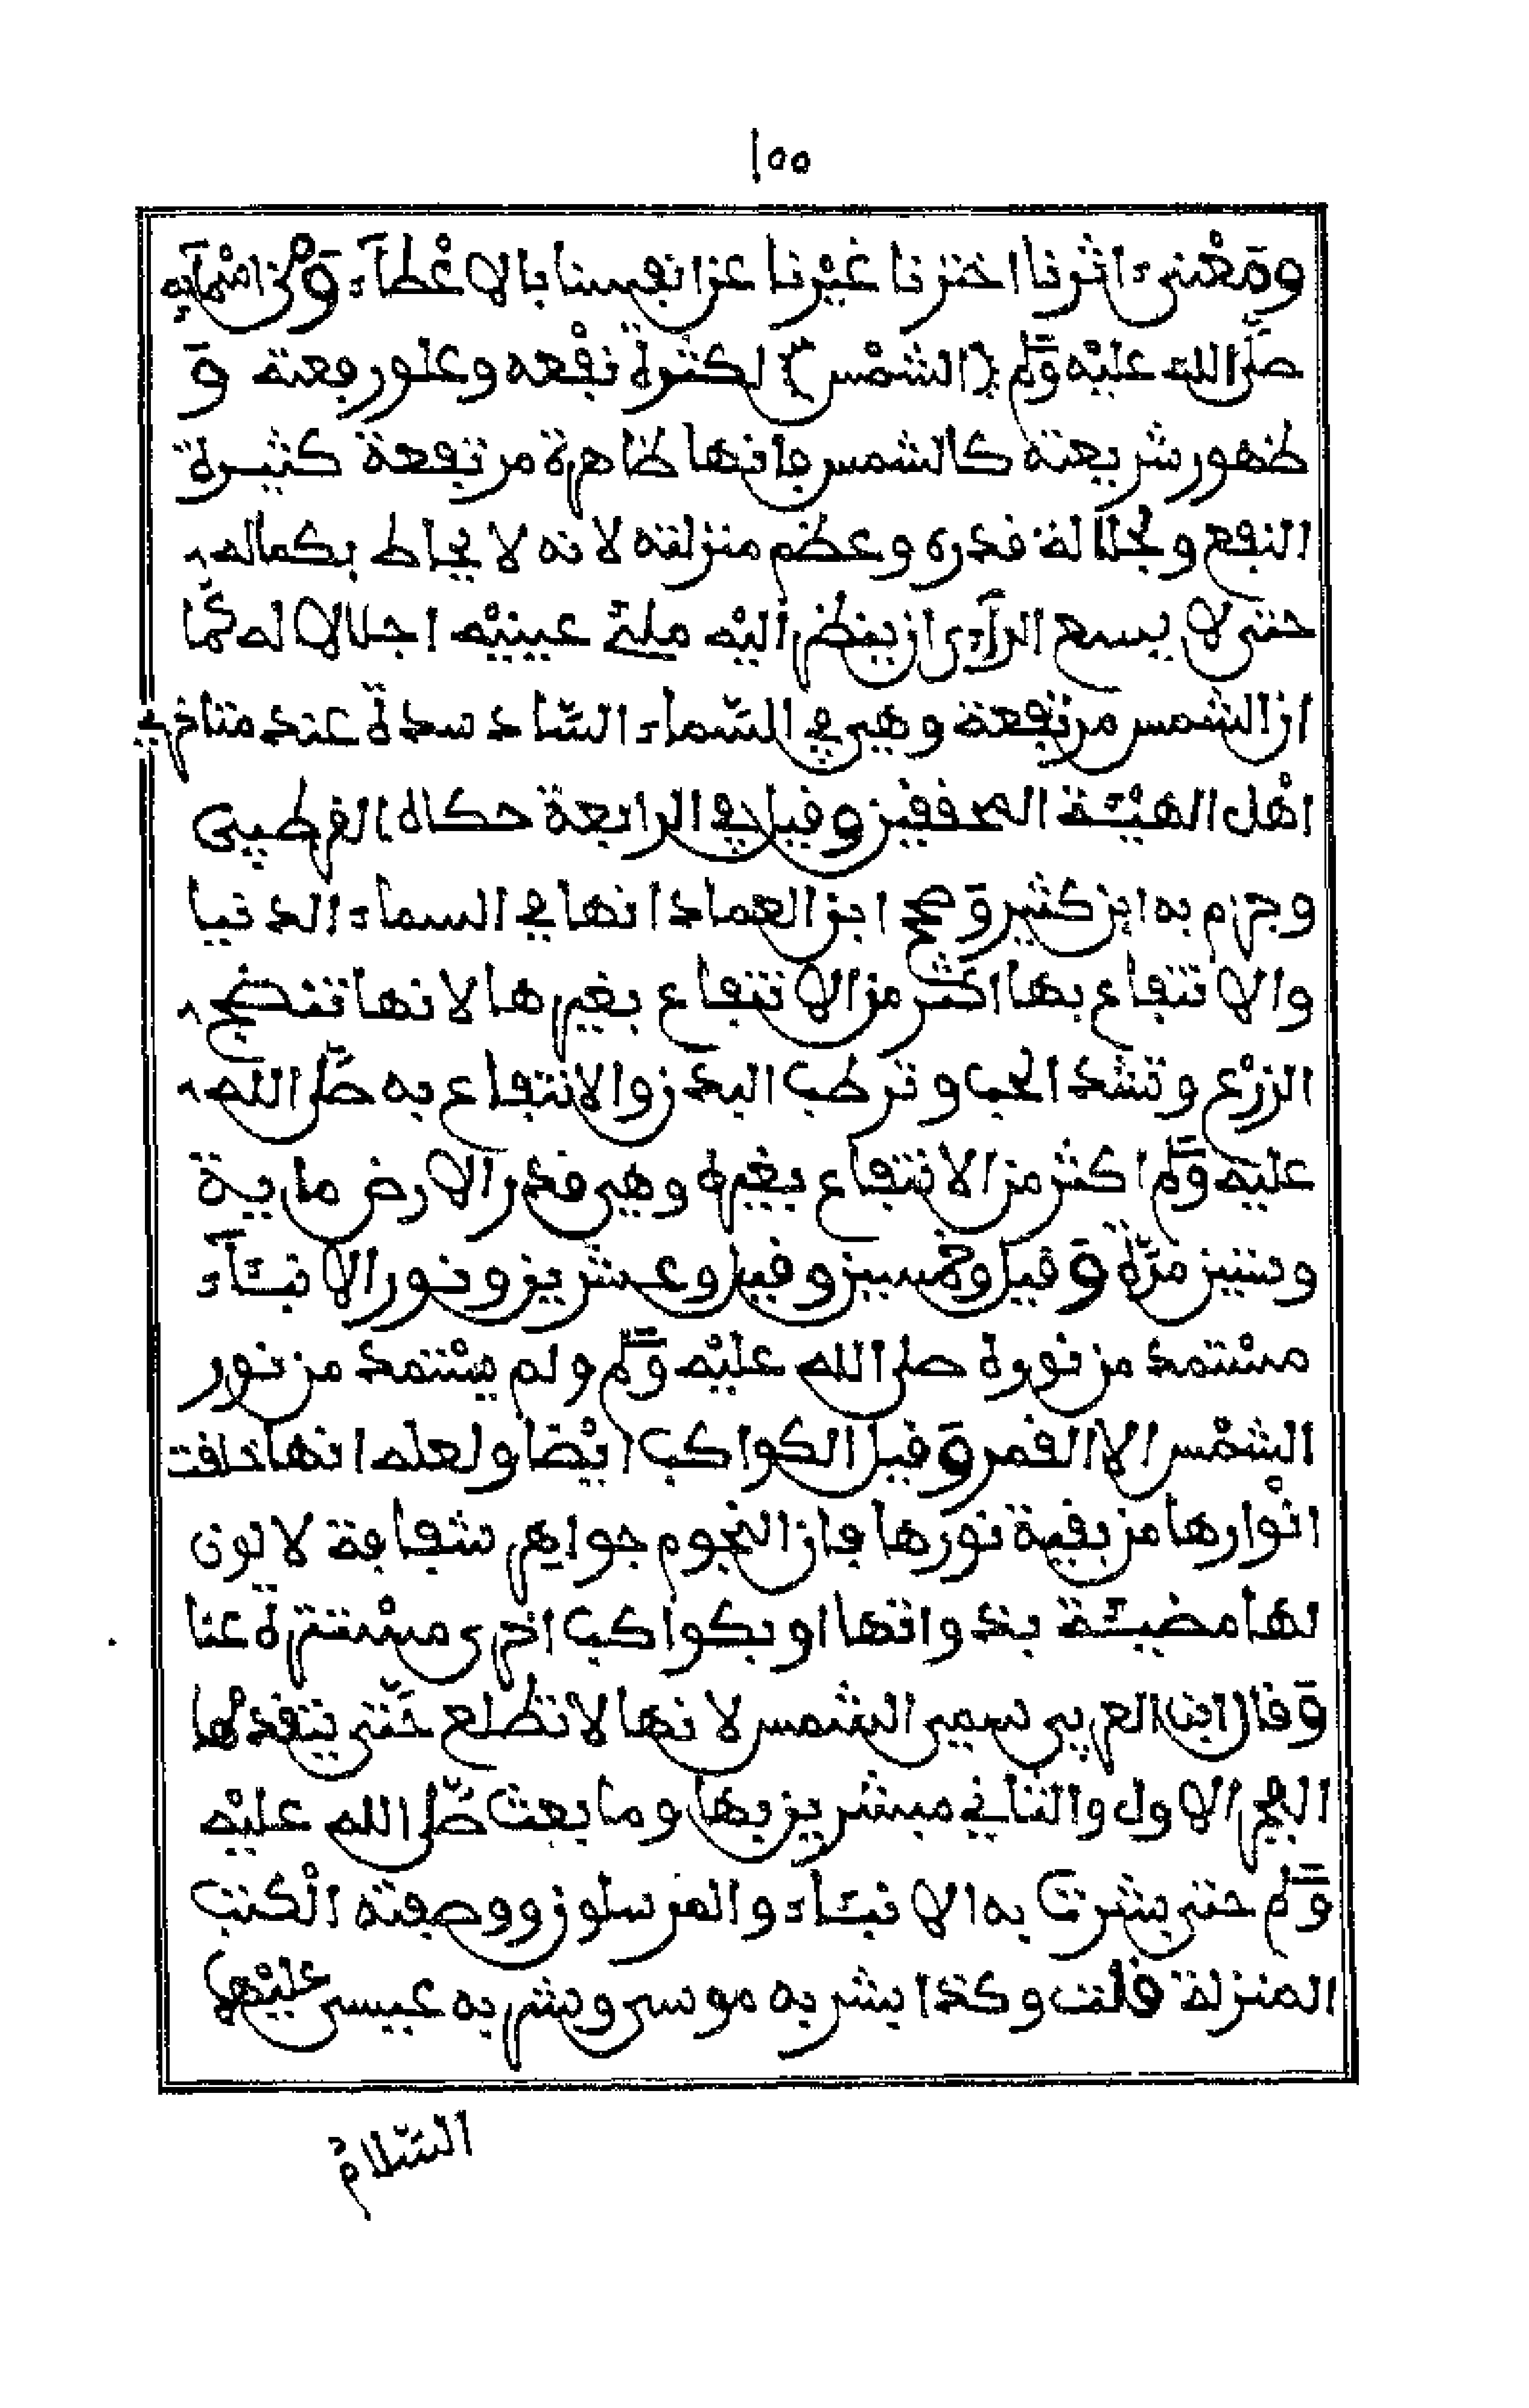 ١٥٥
ومعنى ءاثرنا اخترنا غيرنا عن انفسنا بالاعطاء ومن اسمايه
صلى الله عليه وسلم (الشمس) لكثرة نفعه وعلو رفعته و
ظهور شريعته كالشمس فانها ظاهرة مرتفعة كثيرة
النفع ولجلالة قدره وعظم منزلته لانه لا يحاط بكماله
حتى لا يسع الرآءي ان ينظر اليه ملئ عينيه اجلالا له كما
ان الشمس مرتفعة وهي في السماء السادسة عند متاخري
اهل الهيئة المحققين وقيل في الرابعة حكاه القرطبي
وجزم به ابن كثير وصحح ابن العماد انها في السماء الدنيا
والانتفاع بها اكثر من الانتفاع بغيرها لانها تنضج
الزرع وتشد الحب وترطب البدن والانتفاع به صلى الله
عليه وسلم اكثر من الانتفاع بغيره وهي قدر الارض ماية
وستين مرة وقيل وخمسين وقيل وعشرين ونور الانبئاء
مستمد من نوره صلى الله عليه وسلم ولم يستمد من نور
الشمس الا القمر وقيل الكواكب ايضا ولعله انها خلقت
انوارها من بقية نورها فان النجوم جواهر شفافة لا لون
لها مضيئة بذواتها او بكواكب اخرى مستترة عنا
وقال ابن العربي سمي الشمس لانها لا تطلع حتى يتقدمها
الفجر الاول والثاني مبشرين بها وما بعث صلى الله عليه
وسلم حتى بشرت به الانبئاء والمرسلون ووصفته الكتب
المنزلة قلت وكذا بشر به موسى وبشر به عيسى عليهما
السلام